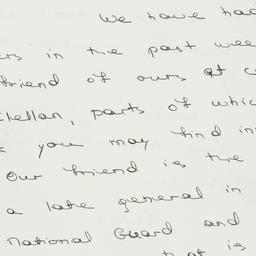 we have had
ers in the past wee
friend of ours at c
chellan, parts of whic
you may find in
Our friend is the
a late general in
National Guard and
t of is